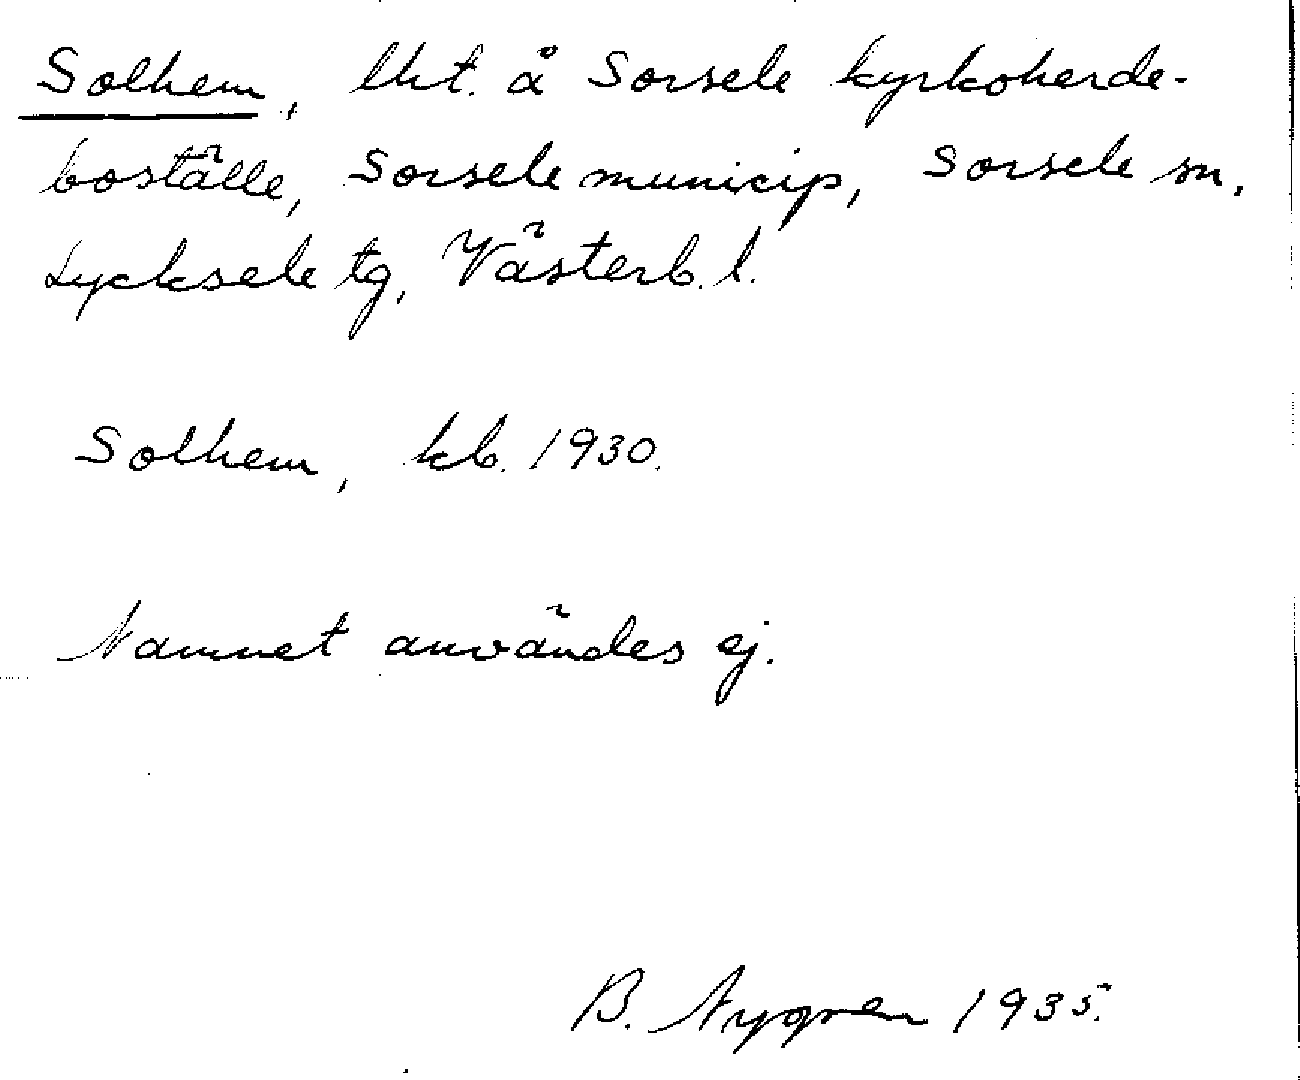 Solhem, lht. å Sorsele kyrkoherde-
boställe, Sorsele municip, Sorsele sn,
Lycksele tg, Västerb. l.
Solhem, kb. 1930.
Namnet användes ej.
B. Nygren 1935.